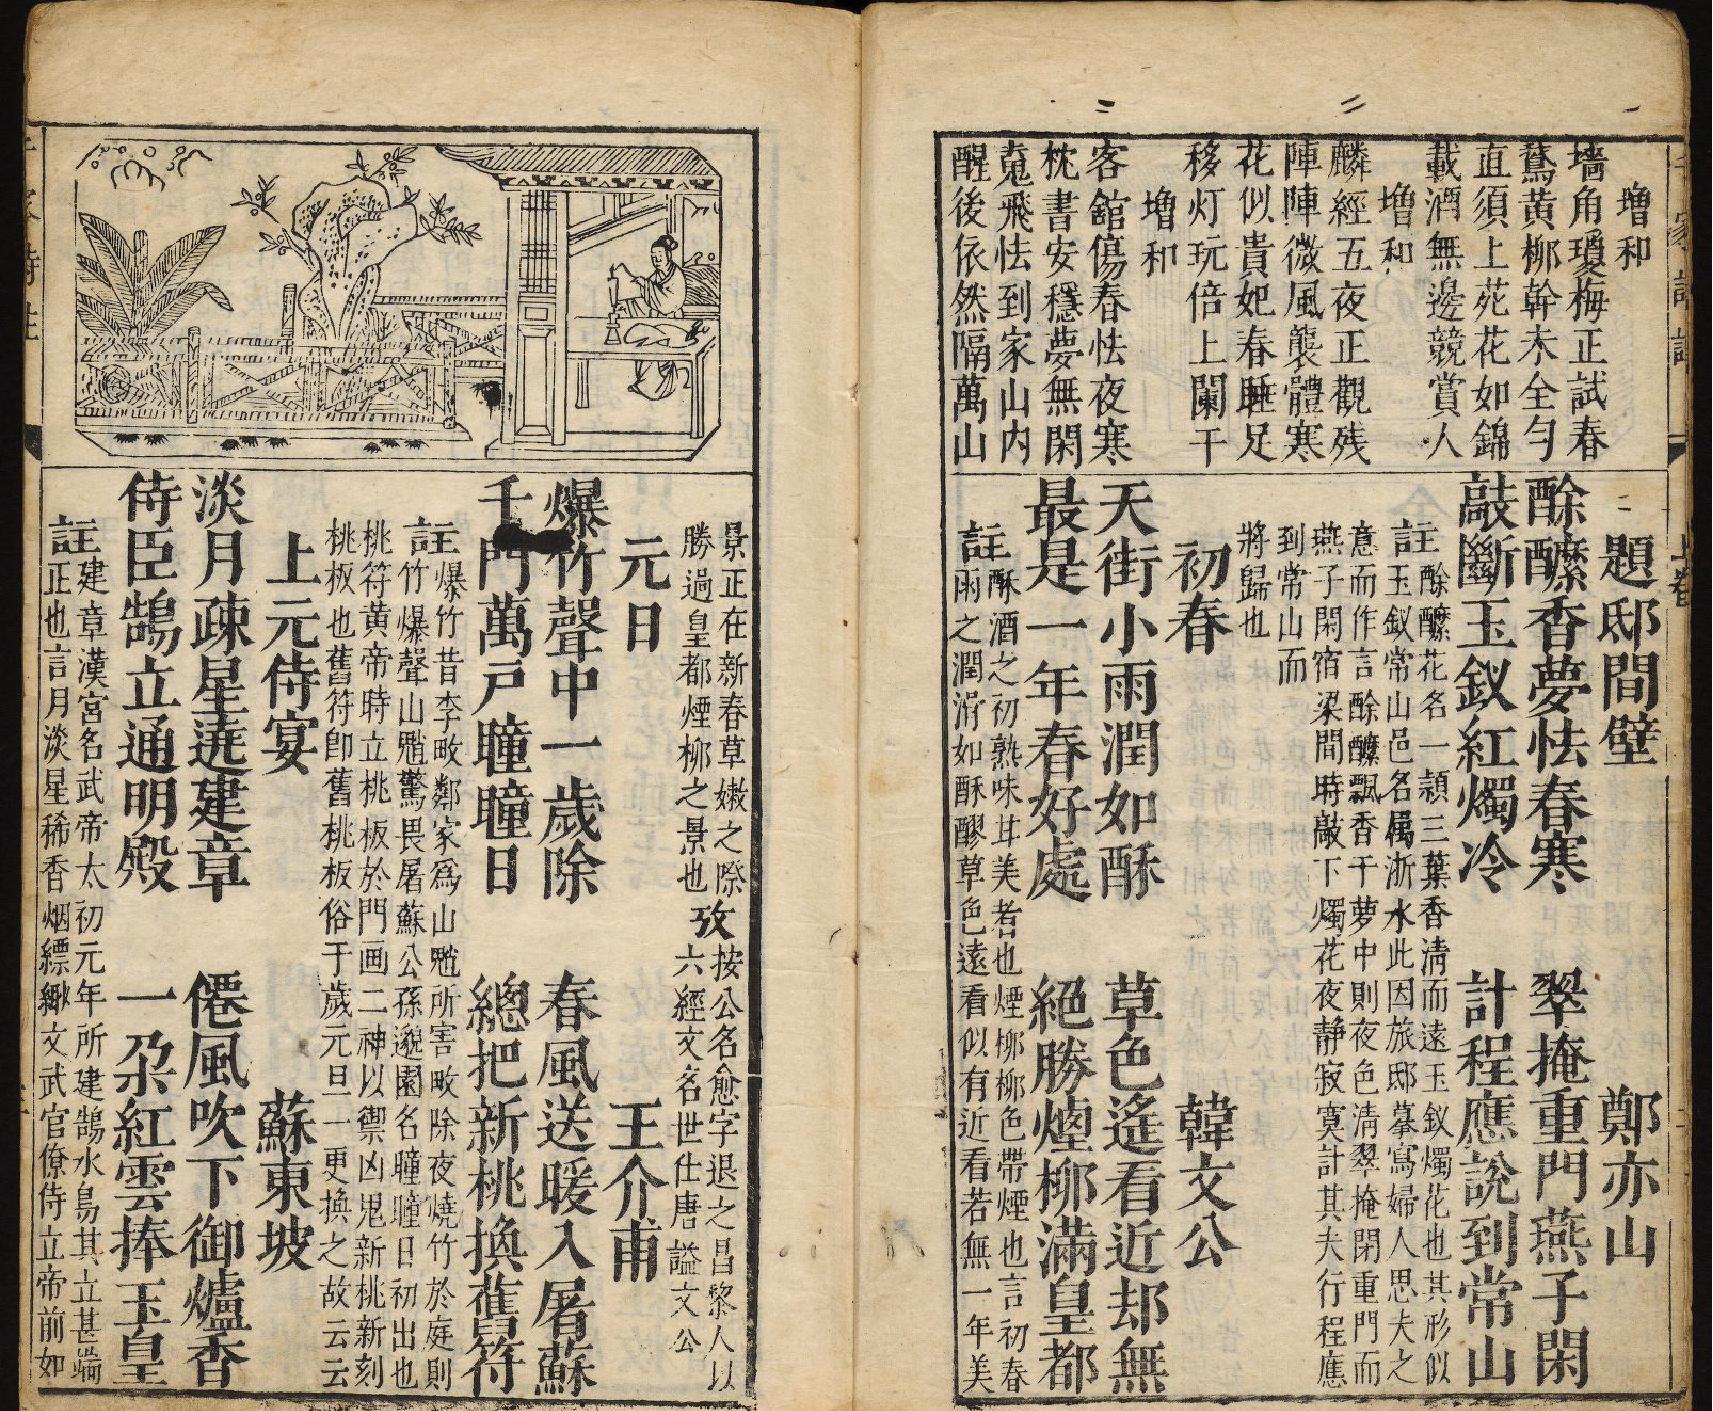 增和
墻角瓊梅正試春
鵞黃柳幹未全勻
直須上苑花如錦
載酒無邊競賞人
增和
麟經五夜正觀残
陣陣微風襲體寒
花似貴妃春睡足
移灯玩倍上闌干
增和
客舘傷春怯夜寒
枕書安穩夢無閑
蒐飛怯到家山內
醒後依然隔萬山
題邸間壁 鄭亦山
酴醿香夢怯春寒 翠掩重門燕子閑
敲斷玉釵紅燭冷 計程應說到常山
註酴醿花名一頴三葉香淸而遠玉釵燭花也其形似
玉釵常山邑名属浙水此因旅邸摹寫婦人思夫之
意而作言酴醿飄香于萝中則夜色淸翠掩閉重門而
燕子閑宿梁間時敲下燭花夜静寂寞計其夫行程應
到常山而
將歸也
初春 韓文公
天街小雨潤如酥 草色遙看近却無
最是一年春好處 絕勝煙柳滿皇都
註酥酒之初熟味甘美者也煙柳柳色帶煙也言初春
雨之潤滑如酥醪草色遠看似有近看若無一年美
景正在新春草嫩之際攷按公名愈字退之昌黎人以
勝過皇都煙柳之景也六經文名世仕唐謚文公
元日 王介甫
爆竹聲中一歲除 春風送暖入屠蘇
千門萬戸曈曈日 總把新桃換舊符
註爆竹昔李畋鄰家爲山魈所害畋除夜燒竹於庭則
竹爆聲山魈驚畏屠蘇公孫邈園名曈曈日初出也
桃符黄帝時立桃板於門画二神以禦凶鬼新桃新刻
桃板也舊符卽舊桃板俗于歲元旦一更換之故云云
上元侍宴 蘇東坡
淡月疎星遶建章 僊風吹下御爐香
侍臣鵠立通明殿 一朶紅雲捧玉皇
註建章漢宮名武帝太初元年所建鵠水鳥其立甚端
正也言月淡星稀香烟縹緲文武官僚侍立帝前如